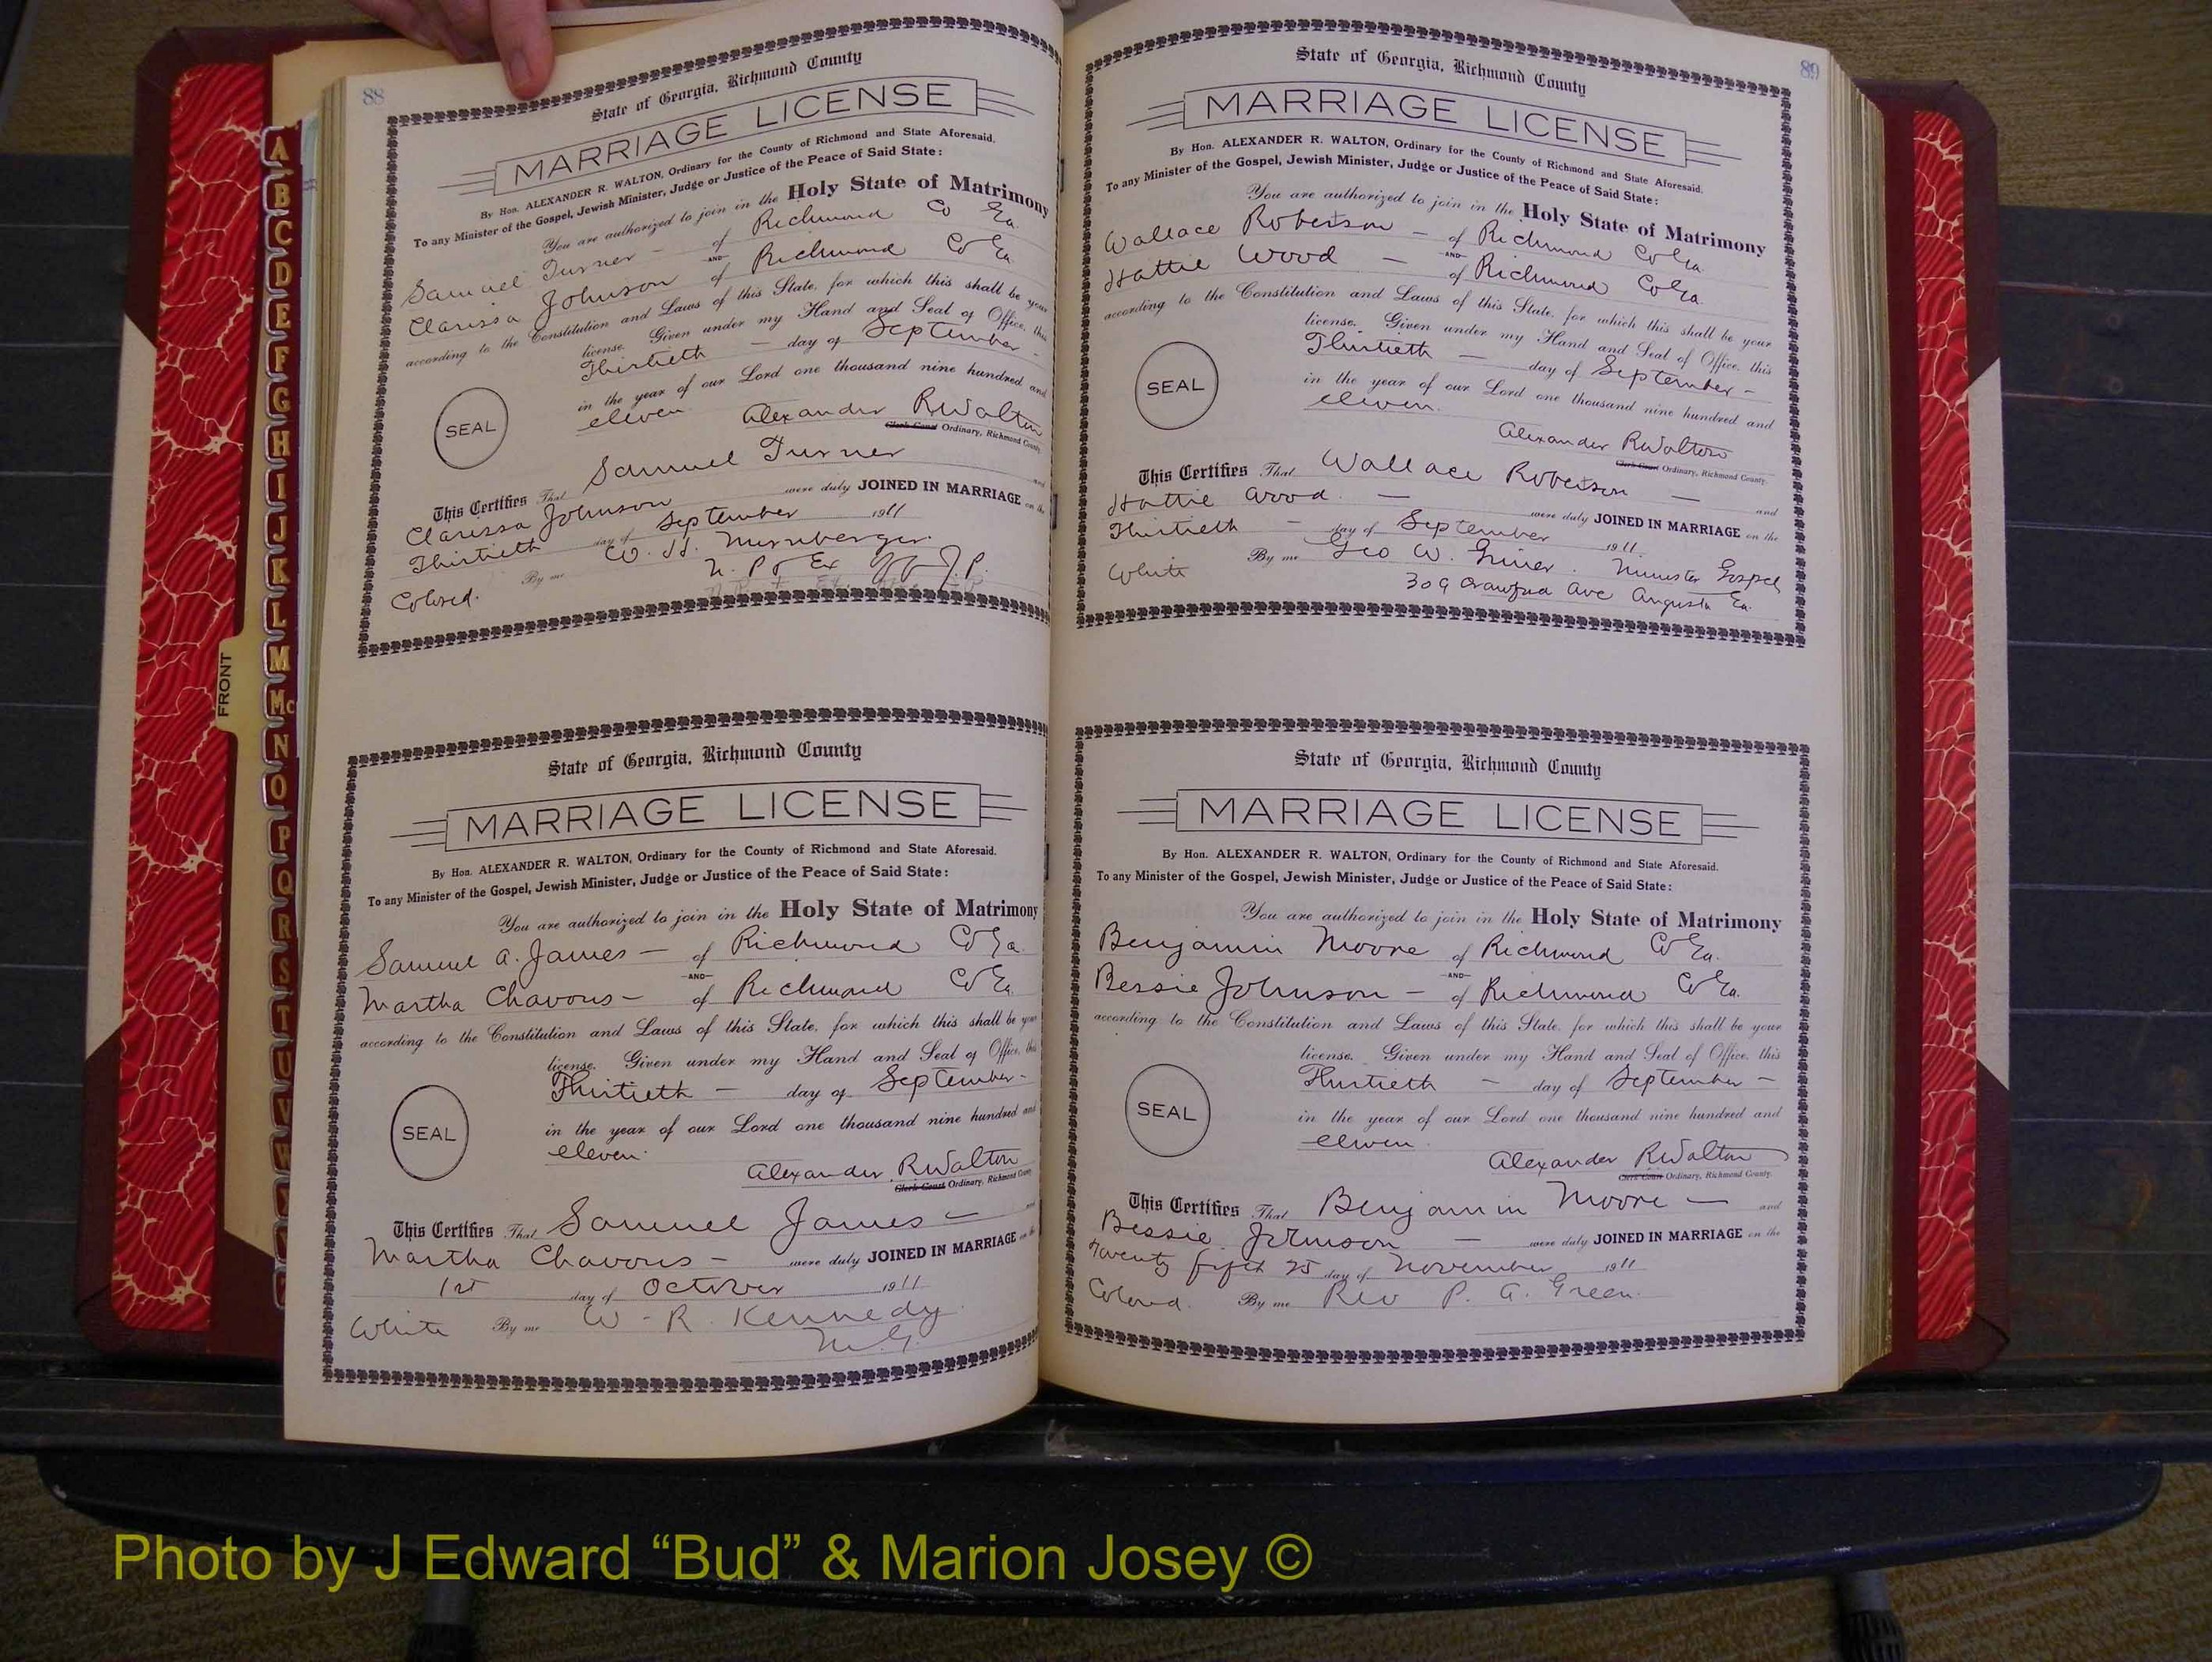 88
State of Georgia, Richmond County
MARRIAGE LICENSE
By Hon. ALEXANDER R. WALTON, Ordinary for the County of Richmond and State Aforesaid.
To any Minister of the Gospel, Jewish Minister, Judge or Justice of the Peace of Said State:
You are authorized to join in the Holy State of Matrimony
Samuel Turner — of Richmond Co Ga.
AND
Clarissa Johnson of Richmond Co Ga.
according to the Constitution and Laws of this State, for which this shall be your
license. Given under my Hand and Seal of Office, this
Thirtieth — day of September —
in the year of our Lord one thousand nine hundred and
eleven
SEAL
Alexander R Walton
Clerk Court Ordinary, Richmond County.
This Certifies That Samuel Turner and
Clarissa Johnson were duly JOINED IN MARRIAGE on the
Thirtieth day of September 1911
By me W. H. Nurnberger.
Colored. N. P & Ex Off J. P.
State of Georgia, Richmond County
MARRIAGE LICENSE
By Hon. ALEXANDER R. WALTON, Ordinary for the County of Richmond and State Aforesaid.
To any Minister of the Gospel, Jewish Minister, Judge or Justice of the Peace of Said State:
You are authorized to join in the Holy State of Matrimony
Samuel A. James — of Richmond Co Ga.
AND
Martha Chavous — of Richmond Co Ga.
according to the Constitution and Laws of this State, for which this shall be your
license. Given under my Hand and Seal of Office, this
Thirtieth — day of September —
in the year of our Lord one thousand nine hundred and
eleven.
SEAL
Alexander R Walton
Clerk Court Ordinary, Richmond County
This Certifies That Samuel James — and
Martha Chavous — were duly JOINED IN MARRIAGE on the
1st day of October 1911
White By me W. R. Kennedy
M. G.
89
State of Georgia, Richmond County
MARRIAGE LICENSE
By Hon. ALEXANDER R. WALTON, Ordinary for the County of Richmond and State Aforesaid.
To any Minister of the Gospel, Jewish Minister, Judge or Justice of the Peace of Said State:
You are authorized to join in the Holy State of Matrimony
Wallace Robertson — of Richmond Co Ga.
AND
Hattie Wood — of Richmond Co Ga.
according to the Constitution and Laws of this State, for which this shall be your
license. Given under my Hand and Seal of Office, this
Thirtieth — day of September —
in the year of our Lord one thousand nine hundred and
eleven.
SEAL
Alexander R Walton
Clerk Court Ordinary, Richmond County.
This Certifies That Wallace Robertson — and
Hattie Wood. — were duly JOINED IN MARRIAGE on the
Thirtieth — day of September 1911.
White By me Geo W. Griner. Minister Gospel
309 Crawford Ave Augusta Ga.
State of Georgia, Richmond County
MARRIAGE LICENSE
By Hon. ALEXANDER R. WALTON, Ordinary for the County of Richmond and State Aforesaid.
To any Minister of the Gospel, Jewish Minister, Judge or Justice of the Peace of Said State:
You are authorized to join in the Holy State of Matrimony
Benjamin Moore of Richmond Co Ga.
AND
Bessie Johnson — of Richmond Co Ga.
according to the Constitution and Laws of this State, for which this shall be your
license. Given under my Hand and Seal of Office, this
Thirtieth — day of September —
in the year of our Lord one thousand nine hundred and
eleven.
SEAL
Alexander R Walton
Clerk Court Ordinary, Richmond County.
This Certifies That Benjamin Moore — and
Bessie Johnson — were duly JOINED IN MARRIAGE on the
Twenty fifth 25 day of November 1911
Colored. By me Rev P. A. Green.
FRONT
A
B
C
D
E
F
G
H
I
J
K
L
M
Mc
N
O
P
Q
R
S
T
U
V
W
Photo by J Edward “Bud” & Marion Josey ©